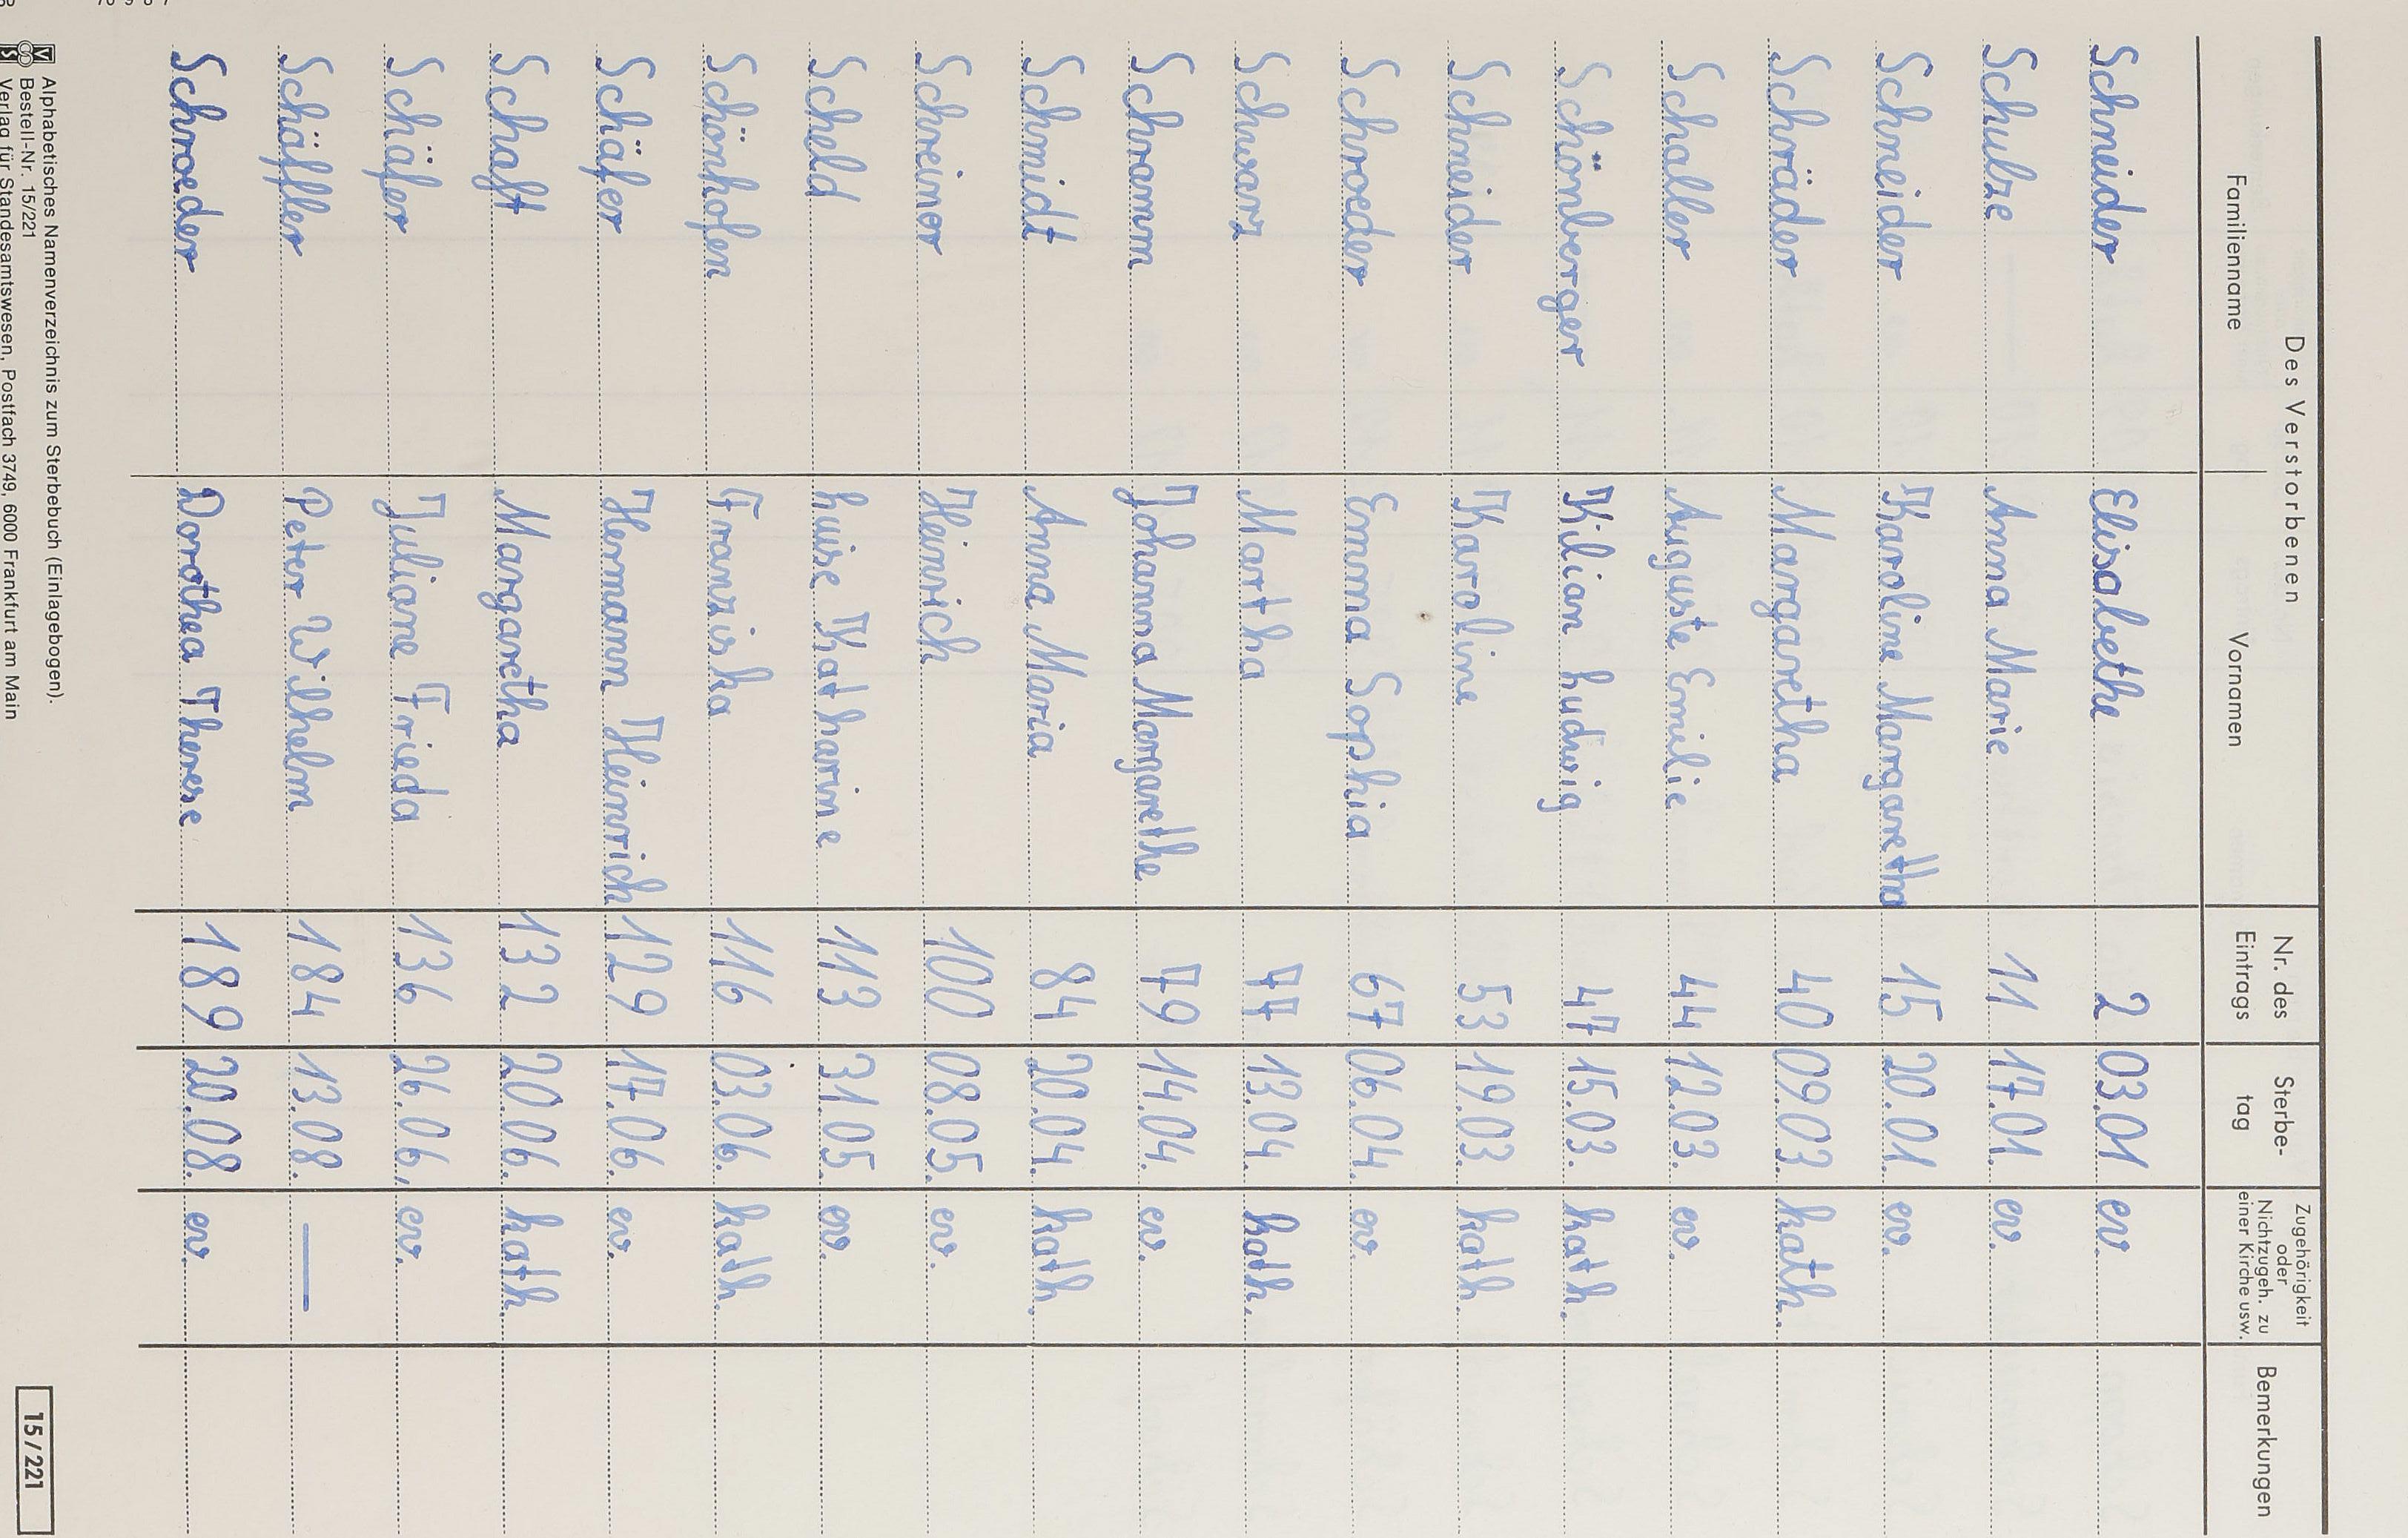 Des Verstorbenen
Familienname Vornamen Nr. des Eintrags Sterbe-tag Zugehörigkeit oder Nichtzugeh. zu einer Kirche usw. Bemerkungen
Schneider Elisabethe 2 03.01 ev.
Schulze Anna Marie 11 17.01. ev.
Schneider Karoline Margaretha 15 20.01. ev.
Schräder Margaretha 40 09.03. kath.
Schaller Auguste Emilie 44 12.03. ev.
Schömberger Kilian Ludwig 47 15.03. kath.
Schneider Karoline 53 19.03. kath.
Schroeder Emma Sophia 67 06.04. ev.
Schwarz Martha 77 13.04. kath.
Schramm Johanna Margarethe 79 14.04. ev.
Schmidt Anna Maria 84 20.04. kath.
Schreiner Heinrich 100 08.05. ev.
Scheld Luise Katharine 113 31.05. ev.
Schönhofen Franziska 116 03.06. kath.
Schäfer Hermann Heinrich 129 17.06. ev.
Schaft Margaretha 132 20.06. kath.
Schäfer Juliane Frieda 136 26.06. ev.
Schäffler Peter Wilhelm 184 13.08. —
Schroeder Dorothea Therese 189 20.08. ev.
Alphabetisches Namenverzeichnis zum Sterbebuch (Einlagebogen).
Bestell-Nr. 15/221
Verlag für Standesamtswesen, Postfach 3749, 6000 Frankfurt am Main
15/221